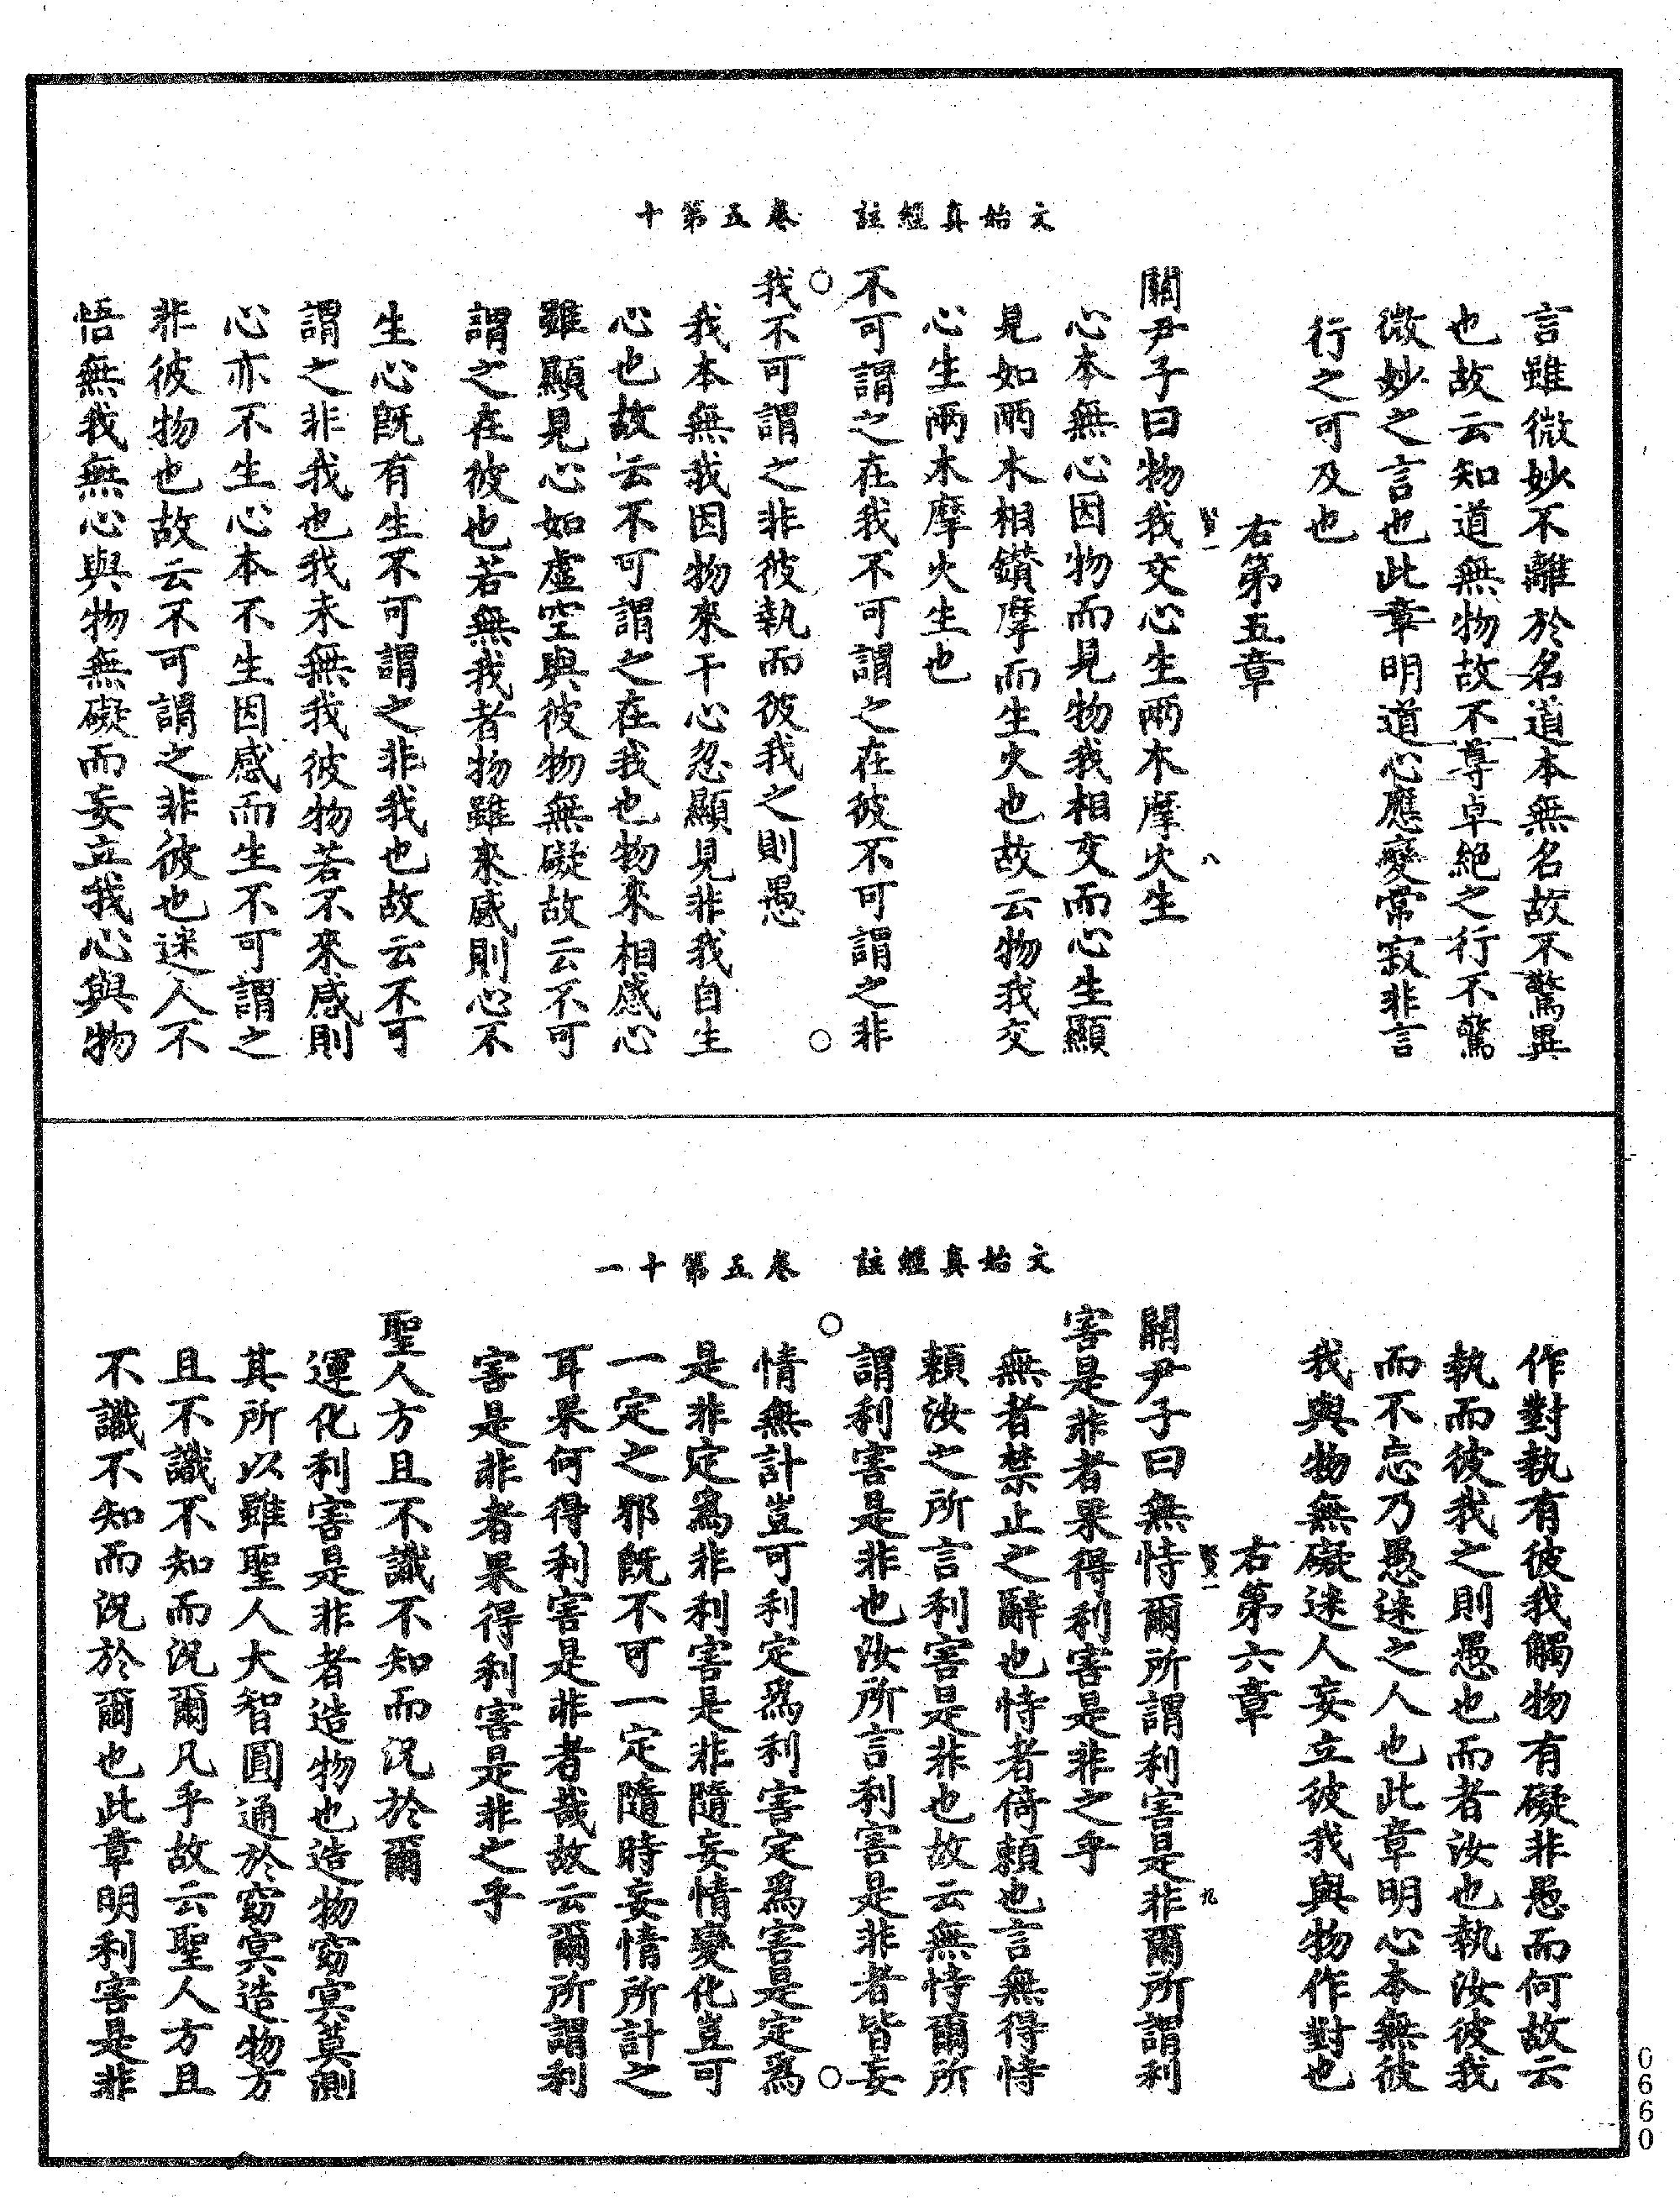 文始真經註　卷五第十
言雖微妙不離於名道本無名故不驚異
也故云知道無物故不尊卓絕之行不驚
微妙之言也此章明道心應變常寂非言
行之可及也
右第五章
八
關尹子曰物我交心生兩木摩火生
心本無心因物而見物我相交而心生顯
見如兩木相鑽摩而生火也故云物我交
心生兩木摩火生也
不可謂之在我不可謂之在彼不可謂之非
我不可謂之非彼執而彼我之則愚
我本無我因物來干心忽顯見非我自生
心也故云不可謂之在我也物來相感心
雖顯見心如虛空與彼物無礙故云不可
謂之在彼也若無我者物雖來感則心不
生心既有生不可謂之非我也故云不可
謂之非我也我未無我彼物若不來感則
心亦不生心本不生因感而生不可謂之
非彼物也故云不可謂之非彼也迷人不
悟無我無心與物無礙而妄立我心與物
文始真經註　卷五第十一
作對執有彼我觸物有礙非愚而何故云
執而彼我之則愚也而者汝也執汝彼我
而不忘乃愚迷之人也此章明心本無彼
我與物無礙迷人妄立彼我與物作對也
右第六章
九
關尹子曰無恃爾所謂利害是非爾所謂利
害是非者果得利害是非之乎
無者禁止之辭也恃者倚賴也言無得恃
賴汝之所言利害是非也故云無恃爾所
謂利害是非也汝所言利害是非者皆妄
情無計豈可利定為利害定為害是定為
是非定為非利害是非隨妄情變化豈可
一定之邪既不可一定隨時妄情所計之
耳果何得利害是非者哉故云爾所謂利
害是非者果得利害是非之乎
聖人方且不識不知而況於爾
運化利害是非者造物也造物窈冥莫測
其所以雖聖人大智圓通於窈冥造物方
且不識不知而況爾凡乎故云聖人方且
不識不知而況於爾也此章明利害是非
0660